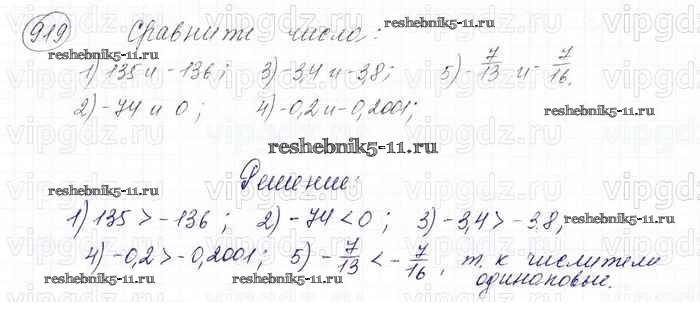 919 Сравните числа:
reshebnik5-11.ru
1) 135 и -136; 3) -3,4 и -3,8; 5) -7/13 и -7/16.
2) -74 и 0; 4) -0,2 и -0,2001;
reshebnik5-11.ru
reshebnik5-11.ru
reshebnik5-11.ru
Решение:
reshebnik5-11.ru
1) 135 > -136; 2) -74 < 0; 3) -3,4 > -3,8;
4) -0,2 > -0,2001; 5) -7/13 < -7/16, т.к числители
одинаковые.
reshebnik5-11.ru
reshebnik5-11.ru